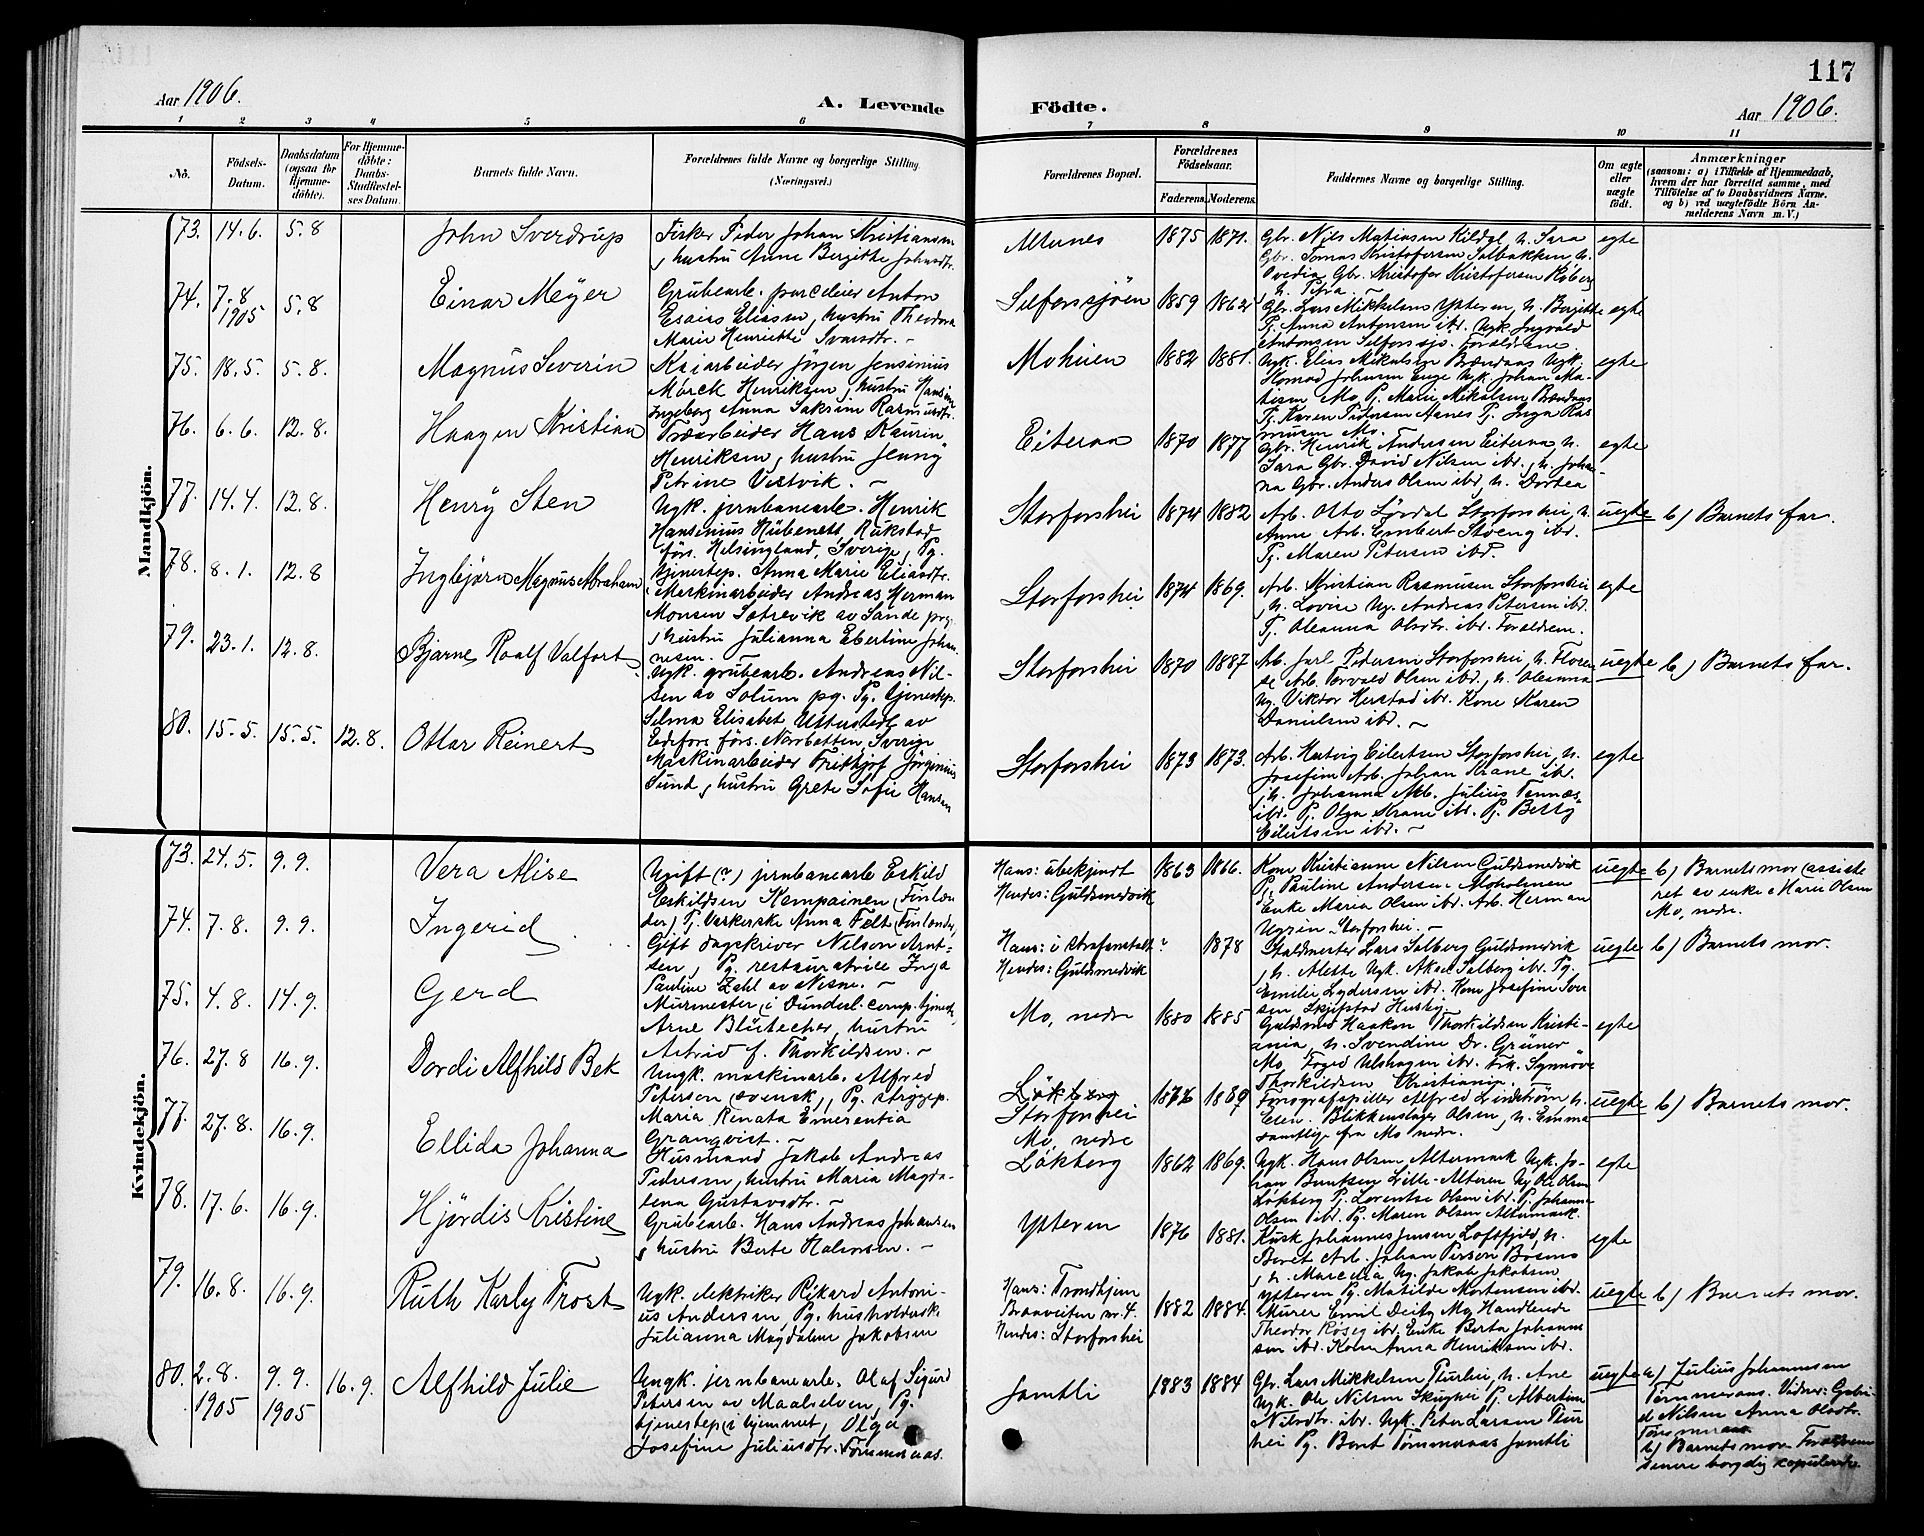 117
Aar 1906.
A. Levende
Födte.
Aar 1906.
1 2 3 4 5 6 7 8 9 10 11
No.
Födsels-Datum.
Daabsdatum (ogsaa for Hjemmedöbte).
For Hjemmedöbte: Daabs-Stadfæstelses Datum.
Barnets fulde Navn.
Forældrenes fulde Navne og borgerlige Stilling. (Næringsvei.)
Forældrenes Bopæl.
Forældrenes Födselsaar.
Faderens. Moderens.
Faddernes Navne og borgerlige Stilling.
Om ægte eller uægte födt.
Anmærkninger
(saasom: a) i Tilfælde af Hjemmedaab, hvem der har forrettet samme, med Tilföielse af to Daabsvidners Navne. og b) ved uægtefödte Börn Anmelderens Navn m. V.)
Mandkjön.
73. 14.6. 5.8 John Sverdrup
Fisker Peder Johan Kristiansen
, hustru Anne Bergitte Johnsdtr.
Altunes 1875 1871.
Gbr. Nils Matiasen Hildal h. Sara
Gbr. Tomas Kristofersen
Gbr. Kristofer Kristofersen
h. Petra
egte
74. 7.8 1905 5.8 Einar Meyer
Grubearb. parceleier Anton
Esaias Eliasen, hustru Theodora
Marie Henriette Ivarsdtr.
Selforssjöen 1859 1862
Gbr. Lars Mikkelsen Ytteren, h. Bergitte
Pg. Anna Antonsen ibd. Ugk. Ingvald
Antonsen Selforssjö. Forældrene.
egte
75. 18.5. 5.8. Magnus Severin
Kaiarbeider Jörgen Jensinius
Mörck Henriksen, hustru Hansine
Ingeborg Anna Sakrine Rasmusdtr.
Mohien 1882 1881.
Ugk. Elias Mikalsen Brændaas Ugk.
Konrad Johansen Enge Ugk. Johan Ma-
tisen Mo Pg. Marie Mikalsen Brændaas
Pg. Karen Pedersen Aanes Pg. Inga Ras
musen Mo.
egte
76. 6.6. 12.8. Haagen Kristian
Træarbeider Hans Kaurin
Henriksen, hustru Jenny
Petrine Vestvik. -
Eiteraa 1870 1877
Gbr. Henrik Andersen Eiteraa h.
Sara Gbr. David Nilsen ibd., h. Joha-
na Gbr. Anders Olsen ibd, h. Dortea
egte
77. 14.4. 12.8. Henry Sten
Ugk. jernbanearb. Henrik
Hansinius Hübenett,
förs. Helsingland, Sverige, Pg.
tjenestep. Anna Marie Eliasdtr.
Storforshei 1874 1882
Arb. Otto Lördal Storforshei, h.
Anne Arb. Embert Stveng ibr.
Pg. Maren Petersen ibd.
uegte b) Barnets far.
78. 8.1. 12.8 Ingbjørn Magnus Abraham
Maskinarbeider Andreas Herman
Monsen Sætrevik av Sande prg.
, hustru Julianna Ebertine Johan
nesen.
Storforshei 1874 1869.
Arb. Kristian Rasmusen Storforshei
, h. Lovise Ug. Andreas Petersen ibd.
Pg. Oleanna Olsdtr. ibr. Forældrene.
egte
79. 23.1. 12.8. Bjarne Roalf Valfort
Ugk. grubearb. Andreas Nil-
sen av Solum pg. Pg. tjenestep.
Selma Elisabet av
Edefors förs. Norbotten, Sverige
Storforshei 1870 1887
Arb. Jarl Pedersen Storforshei, h. Floren
se Arb. Torvald Olsen ibd., h. Oleanna
Ug. Viktor Herstad ibr. Kone Karen
Danielsen ibr.
uegte b) Barnets far.
80. 15.5. 15.5. 12.8. Ottar Reinert
Maskinarbeider Fridtjof Jörginius
Sund, hustru Grete Sofie Hansen
Storforshei 1873 1873.
Arb. Hartvig Eilertsen Storforshei, h.
Josefine Arb. Johan Strane ibr.
, h. Johanna Arb. Julius Tennæs
ibr. Pg. Olga Strane ibr. Pg. Betty
Eilertsen ibr.
egte
Kvindekjön.
73. 24.5. 9.9. Vera Alise
Ugift (?) jernbanearb Eskild
Eskildsen Kempainen (Finlæn
der) Pg. Værkerske Anna Felt (Finlænder)
Hans: ubekjendt
Hendes: Guldsmedvik 1863 1866.
Kone Kristianne Nilsen Guldsmedvik
Pg. Pauline Andersen Moholmen
Enke Maria Olsen ibr. Arb. Herman
Storforshei.
uegte b) Barnets mor (assiste
ret av enke Marie Olsen
Mo, nedre.
74. 7.8. 9.9. Ingerid
Gift dagskriver Nilson Arnt-
sen, Pg. restauratrice Inga
Pauline Zahl av Nesne. -
Hans: i strafanstalt ?
Hendes: Guldsmedvik 1878
Staldmester Lars Solberg Guldsmedvik
, h. Alette Ugk. Aksel Solberg ibr. Pg.
Emilie Lydersen ibr. Kone Josefine Iver
sen Skifstad Husby
uegte b) Barnets mor.
75. 4.8. 14.9. Gerd
Murmester i Dunderl. comp. tjeneste,
Arne Blütecher, hustru
Astrid f. Thorkildsen. -
Mo, nedre 1880 1885
Guldsmed Haakon Thorkildsen Kristi-
ania, h. Svendine Dr. Grüner
Mo, Foged Ulshagen ibr. Frk. Synnöve
Thorkildsen Kristiania.
egte
76. 27.8 16.9. Dordi Alfhild Bek
Ungk. maskinarb. Alfred
Peterson (svensk), Pg. strygep.
Maria Renata Emerentia
Granqvist. -
Lökberg
Storforshei
Mo, nedre 1876 1869
Fonografspiller Alfred Lindstrøm h.
Elen, Blikkenslager Olsen, h. Emma
samtlige fra Mo nedre.
uegte b) Barnets mor.
77. 27.8. 16.9. Ellida Johanna
Husmand Jakob Andreas
Pedersen, hustru Maria Magda-
lena Gustavsdtr. -
Lökberg 1862 1869.
Ugk. Hans Olsen Altermark Ugk. Jo-
han Bentsen Lille-Alteren Ug Ole Olsen
Lökberg Pg. Lorentse Olsen ibd. Pg. Johanna
Olsen ibd. Pg. Maren Olsen Altermark.
egte
78. 17.6. 16.9. Hjördis Kristine
Grubearb. Hans Andreas Johansen
, hustru Berte Halvorsen. -
Ytteren 1876 1881.
Kusk Johannes Jensen Loftfjeld, h.
Beret Arb. Johan Person Bosmo
, h. Marcelia Ug. Jakob Jakobsen
Ytteren Pg. Matilde Mortensen ibr.
egte
79. 16.8. 16.9. Ruth Karly Trost
Ugk. elektriker Rikard Antoni-
us Andersen, Pg. husholderske
Julianna Magdalene Jakobsen
Hans: Trondhjem
nr. 4.
Hendes: Storforshei 1882 1884.
Murer Emil Deitz Mg Handlende
Theodor Röseg ibr. Enke Berta Johann
sen ibr. Kone Anna Henriksen ibr.
uegte b) Barnets mor.
80. 2.8. 1905 9.9. 1905 16.9. Alfhild Julie
Ungk. jernbanearb. Olaf Sigurd
Petersen av Maalselven, Pg.
tjenestep. (i hjemmet), Olga
Josefine Juliusdtr. Tömmeraas.
Jamtli 1883 1884
Gbr. Lars Mikkelsen Fjurhei, h. Ane
Ugk. Ole Nilsen Skughei Pg. Albertine
Nilsdtr. ibr. Ugk. Peter Larsen Fjur
hei Pg. Berit Tömmeraas Jamtli
uegte a) Julius Johannesen
Tömmeraas. Vidner: Gabri-
el Nilsen Anna Olsdtr.
Tömmeraas
b) Barnets mor. Forældrene
senere borgerlig copulerede.